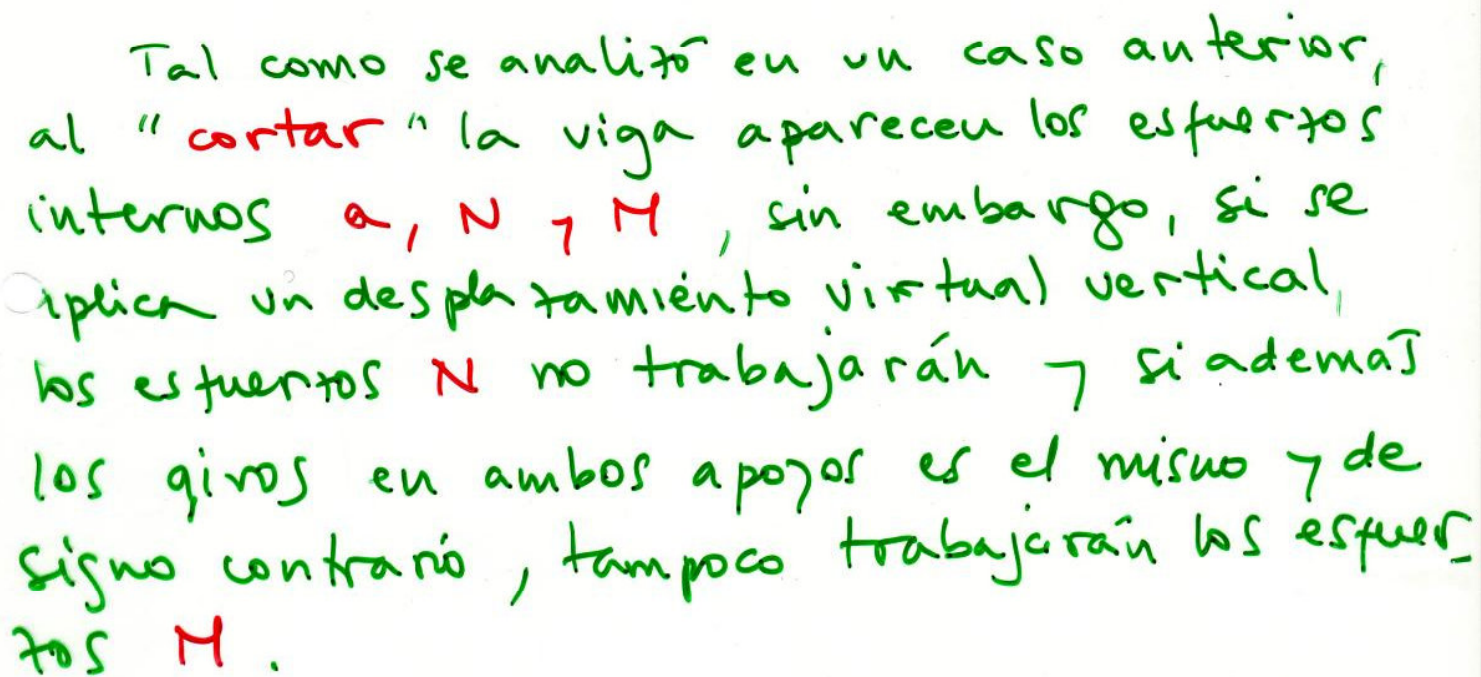 Tal como se analizó en un caso anterior,
al "cortar" la viga aparecen los esfuerzos
internos Q, N y M, sin embargo, si se
aplica un desplazamiento virtual vertical,
los esfuerzos N no trabajarán y si además
los giros en ambos apoyos es el mismo y de
signo contrario, tampoco trabajarán los esfuer_
zos M.